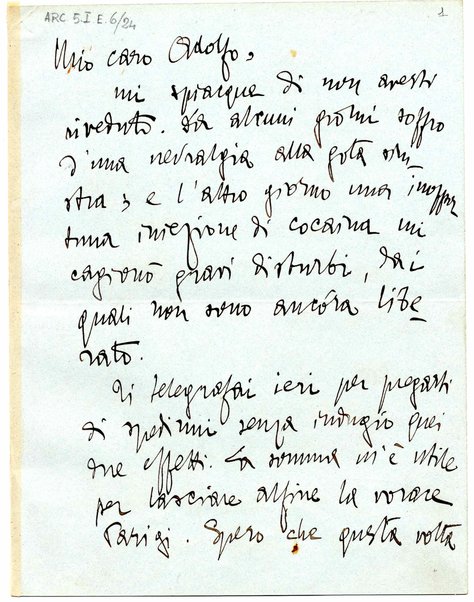 ARC. 5.I E. 6/24
1
Mio caro Adolfo,
mi spiacque di non averti
riveduto. Da alcuni giorni soffro
d'una nevralgia alla gota sini-
stra; e l'altro giorno una inoppor
tuna iniezione di cocaina mi
cagionò gravi disturbi, dai
quali non sono ancóra libe
rato.
Ti telegrafai ieri per pregarti
di spedirmi senza indugio quei
due effetti. La somma m'è utile
per lasciare alfine la vorace
Parigi. Spero che questa volta